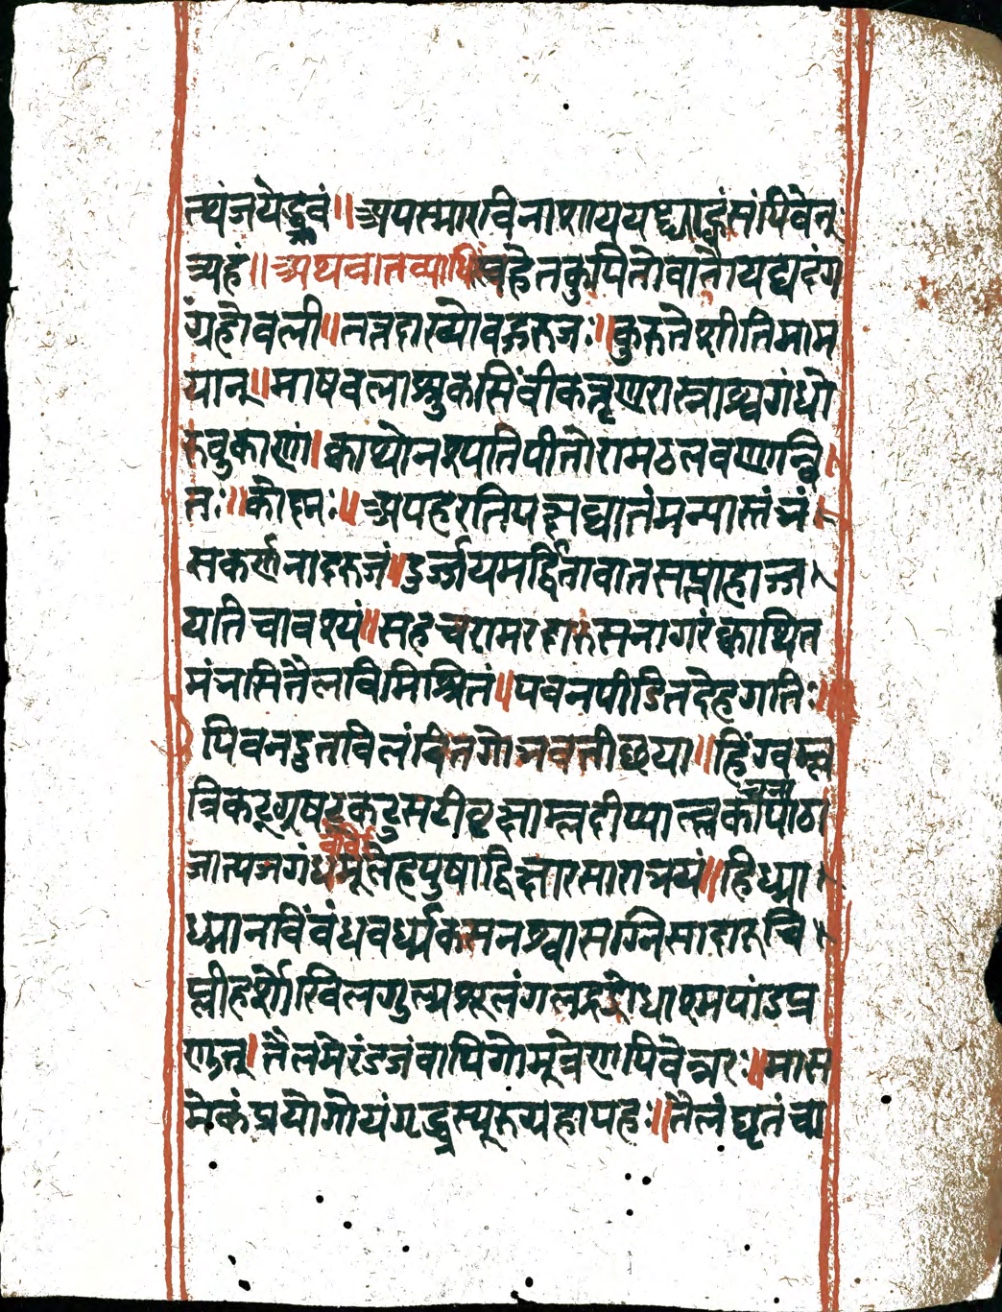 त्थंजयेद्ध्रुवं ॥ अपस्मारविनाशाययष्ट्याह्वंसंपिवेत्
त्र्यहं ॥ अथवातव्याधि वहेतकुपितोवातोयद्यदंग
ंग्रहोवली ॥ तत्तदाख्योवद्गरुजः ॥ कुरुतेशीतिमाम
यान् ॥ माषवलाश्रुकसिंवीकत्तृणरास्नाश्वगंधो
रुवुकाणां । क्वाथोनश्यतिपीतोरामठलवणान्वि
तः ॥ कोह्नः ॥ अपहरतिपक्षघातंमन्यास्तंभं
सकर्णनादरुजं ॥ दुर्ज्जयमर्द्दितवातसप्ताहाज्ज
यतिचावश्यं ॥ सहचरामरदारुसनागरंक्वाथित
मंभसितैलविमिश्रितं ॥ पवनपीडितदेहगतिः ॥
पिवनद्रुतविलंवितगोभवतीछया ॥ हिंग्वम्ल
त्रिकटूग्रषट्कटुसटीवृक्षाम्लदीप्यात्त्लकौपाठा
जात्यजगंधमूलैहपुषाद्विक्षारसारात्रयं ॥ हिध्मा
ध्मानविंवंधवर्ध्मकसनश्वासाग्निसादारुचि
प्लीहर्शोखिलगुल्मश्रूलंगलहृद्रोधाश्मपांडुप्र
णुत् । तैलमेरंडजंवापिगोमूत्रेणपिवेन्नरः ॥ मास
मेकंप्रयोगोयंगृद्ध्रस्यूरुग्रहापहः ॥ तैलंघृतंचा